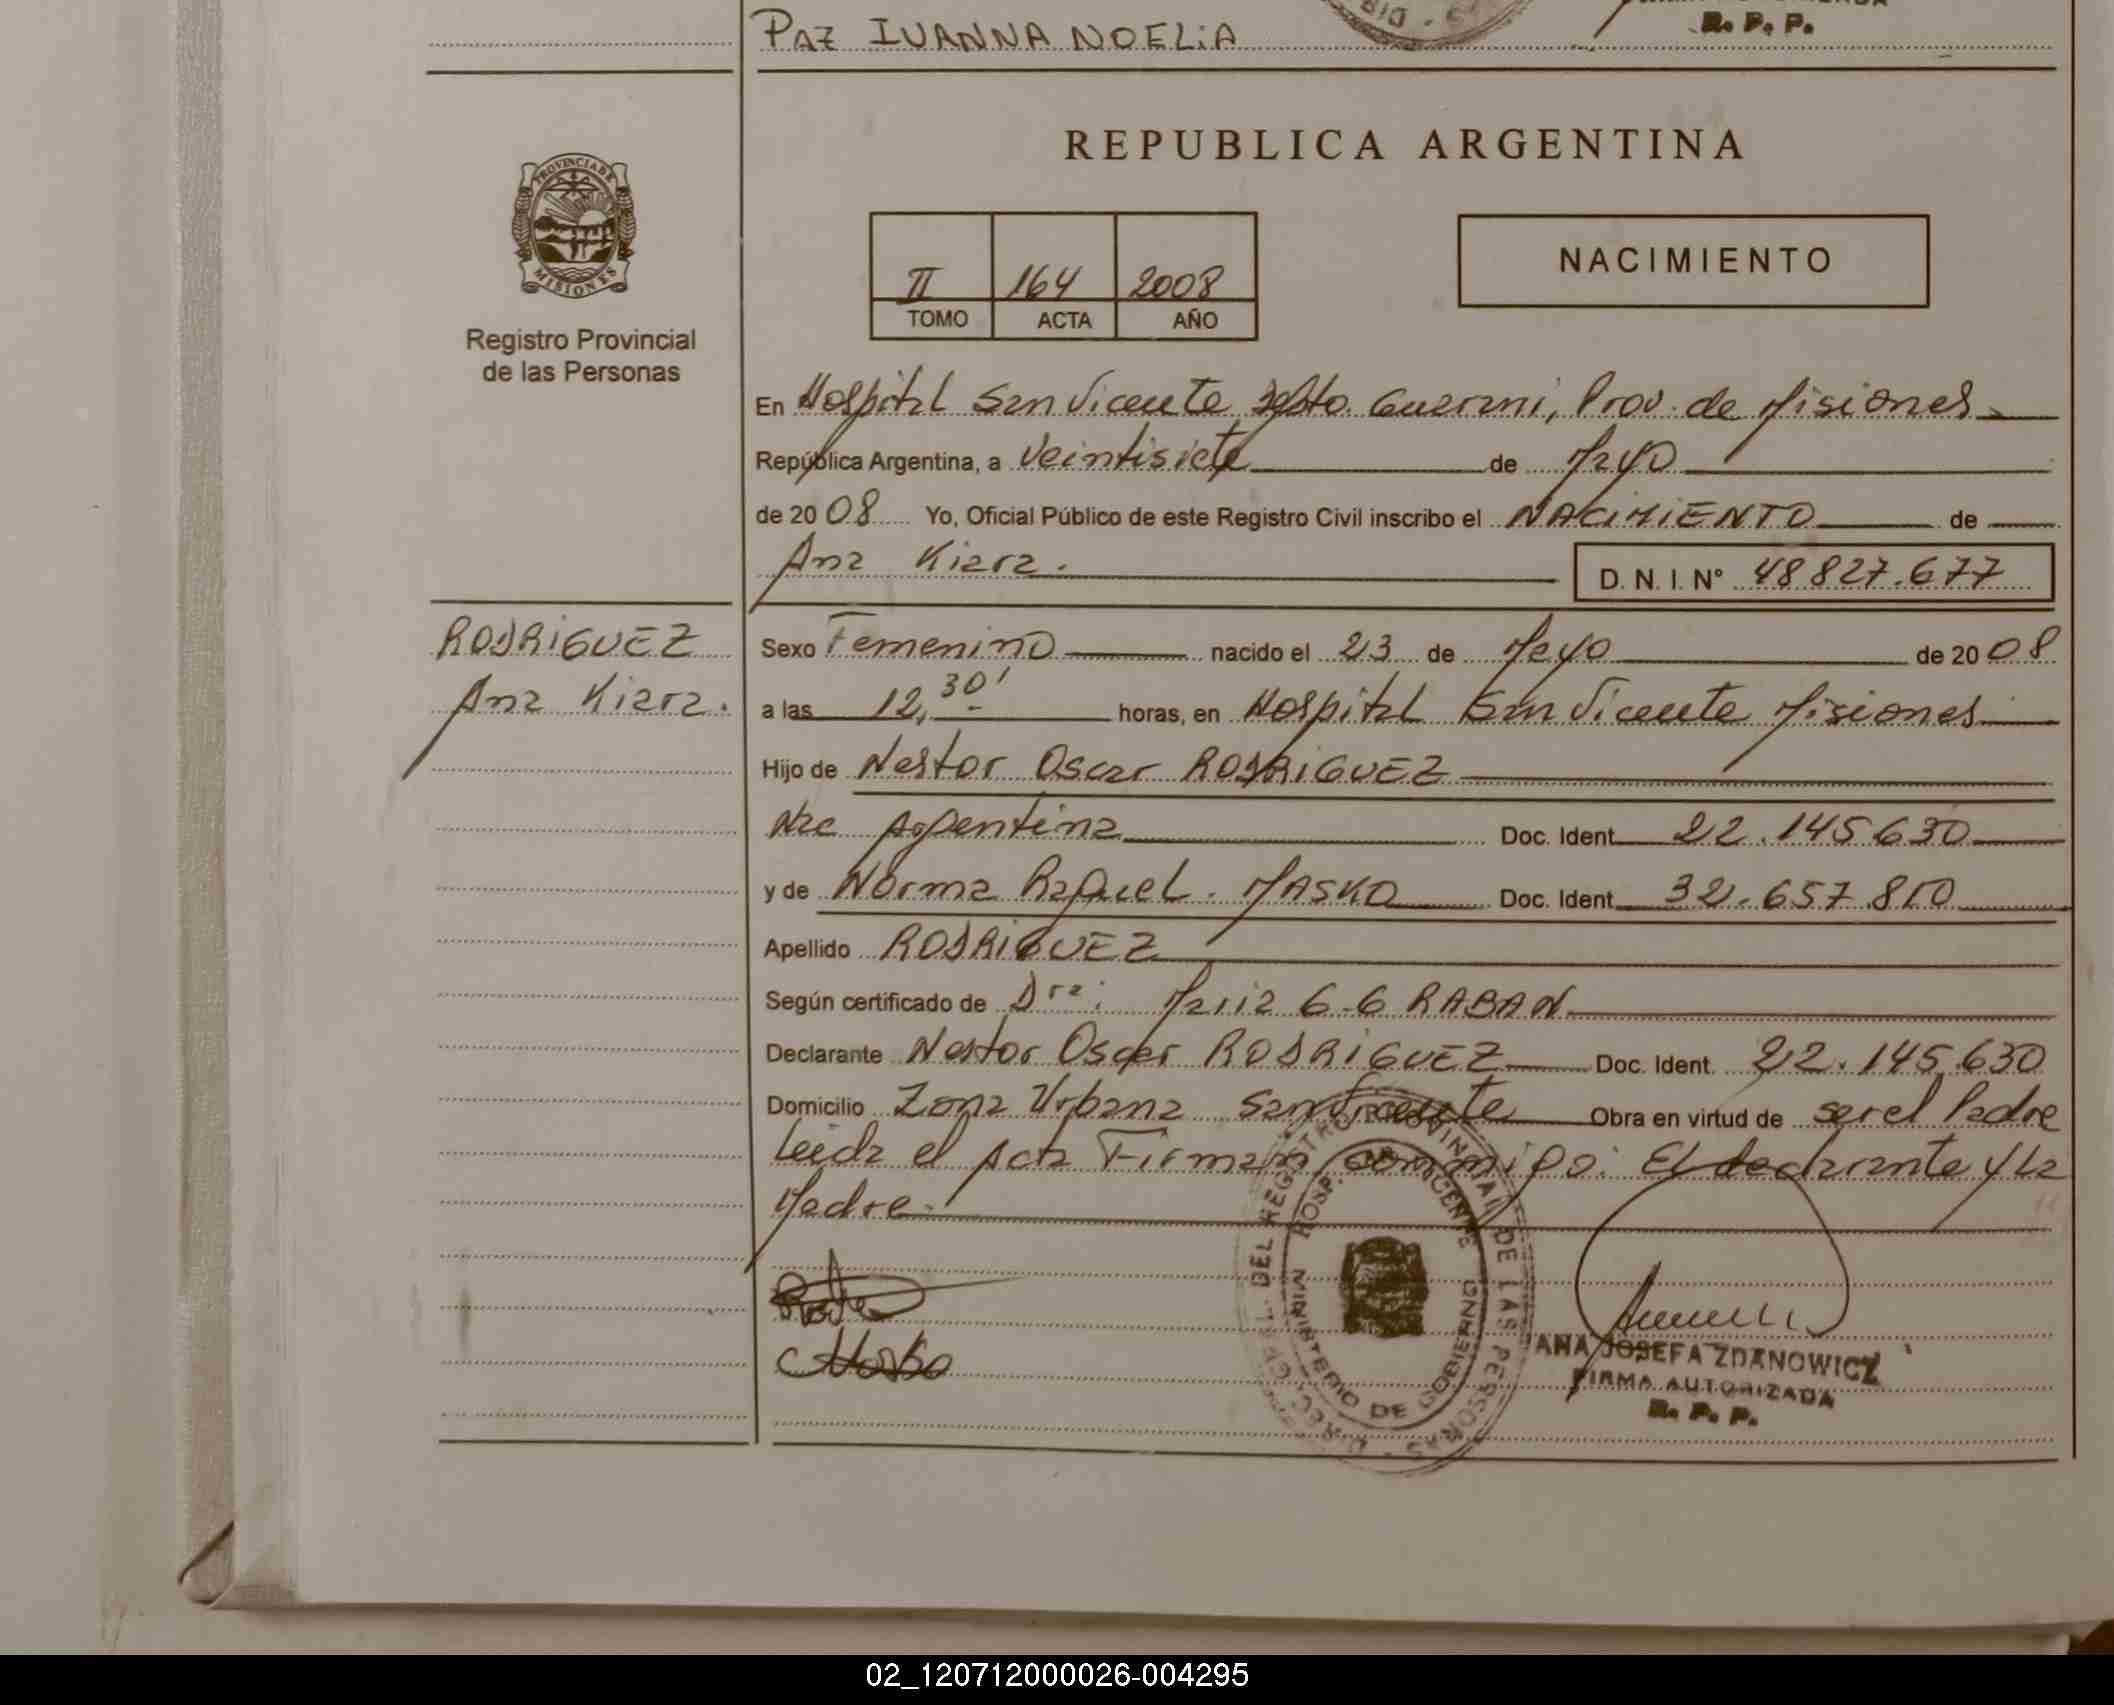 PAZ IVANNA NOELIA
R. P. P.
PROVINCIA DE
MISIONES
Registro Provincial
de las Personas
REPUBLICA ARGENTINA
II 164 2008
TOMO ACTA AÑO
NACIMIENTO
En Hospital San Vicente Dpto. Guarani, Prov. de Misiones
República Argentina, a Veintisiete de Mayo
de 20 08 Yo, Oficial Público de este Registro Civil inscribo el NACIMIENTO de
Ana Kiara.
D. N. I. N° 48 827.677
RODRIGUEZ
Ana Kiara.
Sexo Femenino nacido el 23 de Mayo de 20 08
a las 12,30' horas, en Hospital San Vicente Misiones
Hijo de Nestor Oscar RODRIGUEZ
Nac Argentina Doc. Ident. 22.145.630
y de Norma Raquel. MASKO Doc. Ident. 32.657.810
Apellido RODRIGUEZ
Según certificado de Dra: Maria G.G RABAN
Declarante Nestor Oscar RODRIGUEZ Doc. Ident. 22.145.630
Domicilio Zona Urbana San Vicente Obra en virtud de ser el Padre
Leida el Acta Firman conmigo: El declarante y La
Madre.
DIREC. GRAL. DEL REGISTRO PROVINCIAL DE LAS PERSONAS
HOSP. SAN VICENTE
MINISTERIO DE GOBIERNO
Masko
ANA JOSEFA ZDANOWICZ
FIRMA AUTORIZADA
R. P. P.
02_120712000026-004295